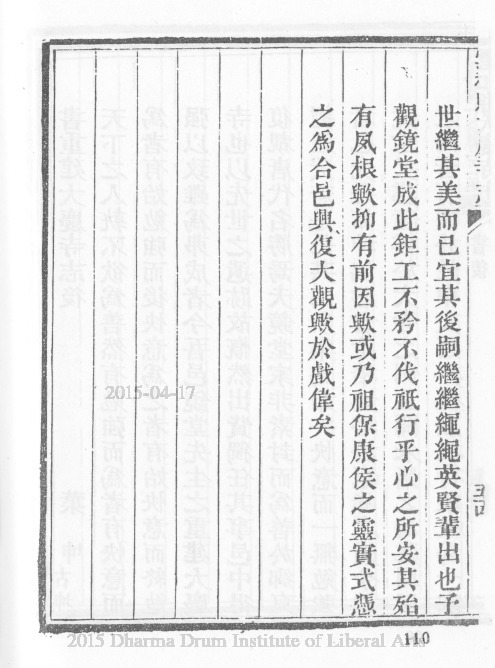 世繼其美而已宜其後嗣繼繼繩繩英賢輩出也予
觀鏡堂成此鉅工不矜不伐祇行乎心之所安其殆
有夙根歟抑有前因歟或乃祖保康侯之靈實式憑
之爲合邑興復大觀歟於戲偉矣
五四
2015-04-17
110
2015 Dharma Drum Institute of Liberal Arts